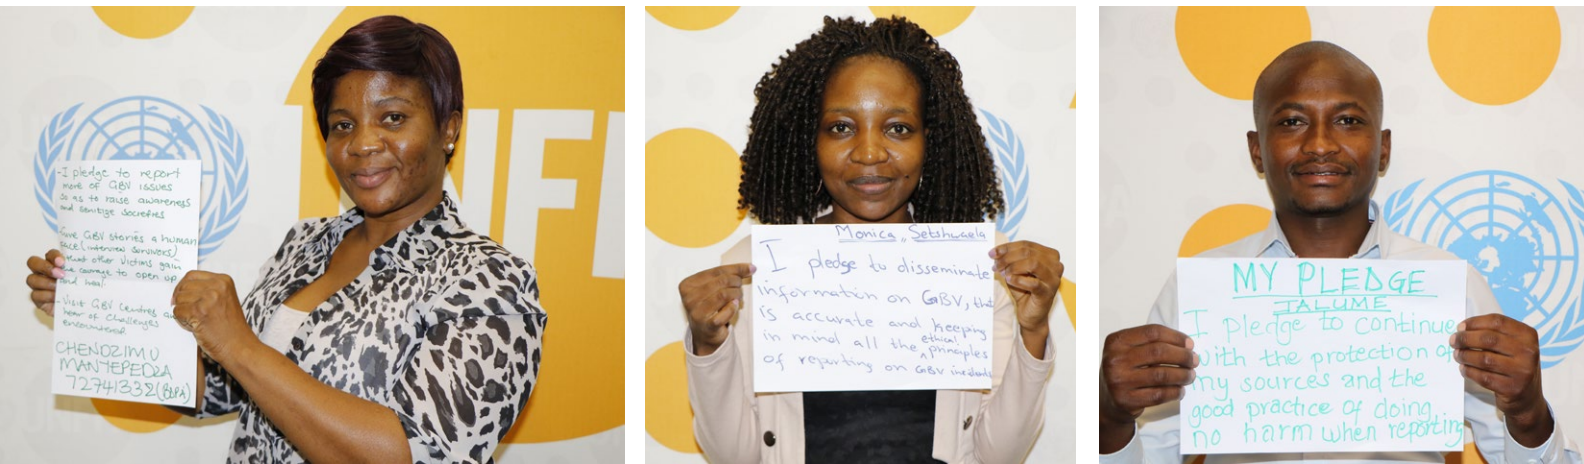 -I pledge to report
more of GBV issues
so as to raise awareness
and sensitize
GBV stories a human
face (interview survivors)
that other victims gain
courage to open up
and heal.
Visit GBV Centres
hear of challenges
encountered
CHENDZIMU
MANYEPEDZA
72741332 (BOPA)
NF
Monica Setshwaela
I pledge to disseminate
information on GBV, that
is accurate and keeping
in mind all the ethical principles
of reporting on GBV incidents
MY PLEDGE
JALUME
I pledge to continue
with the protection of
my sources and the
good practice of doing
no harm when reporting